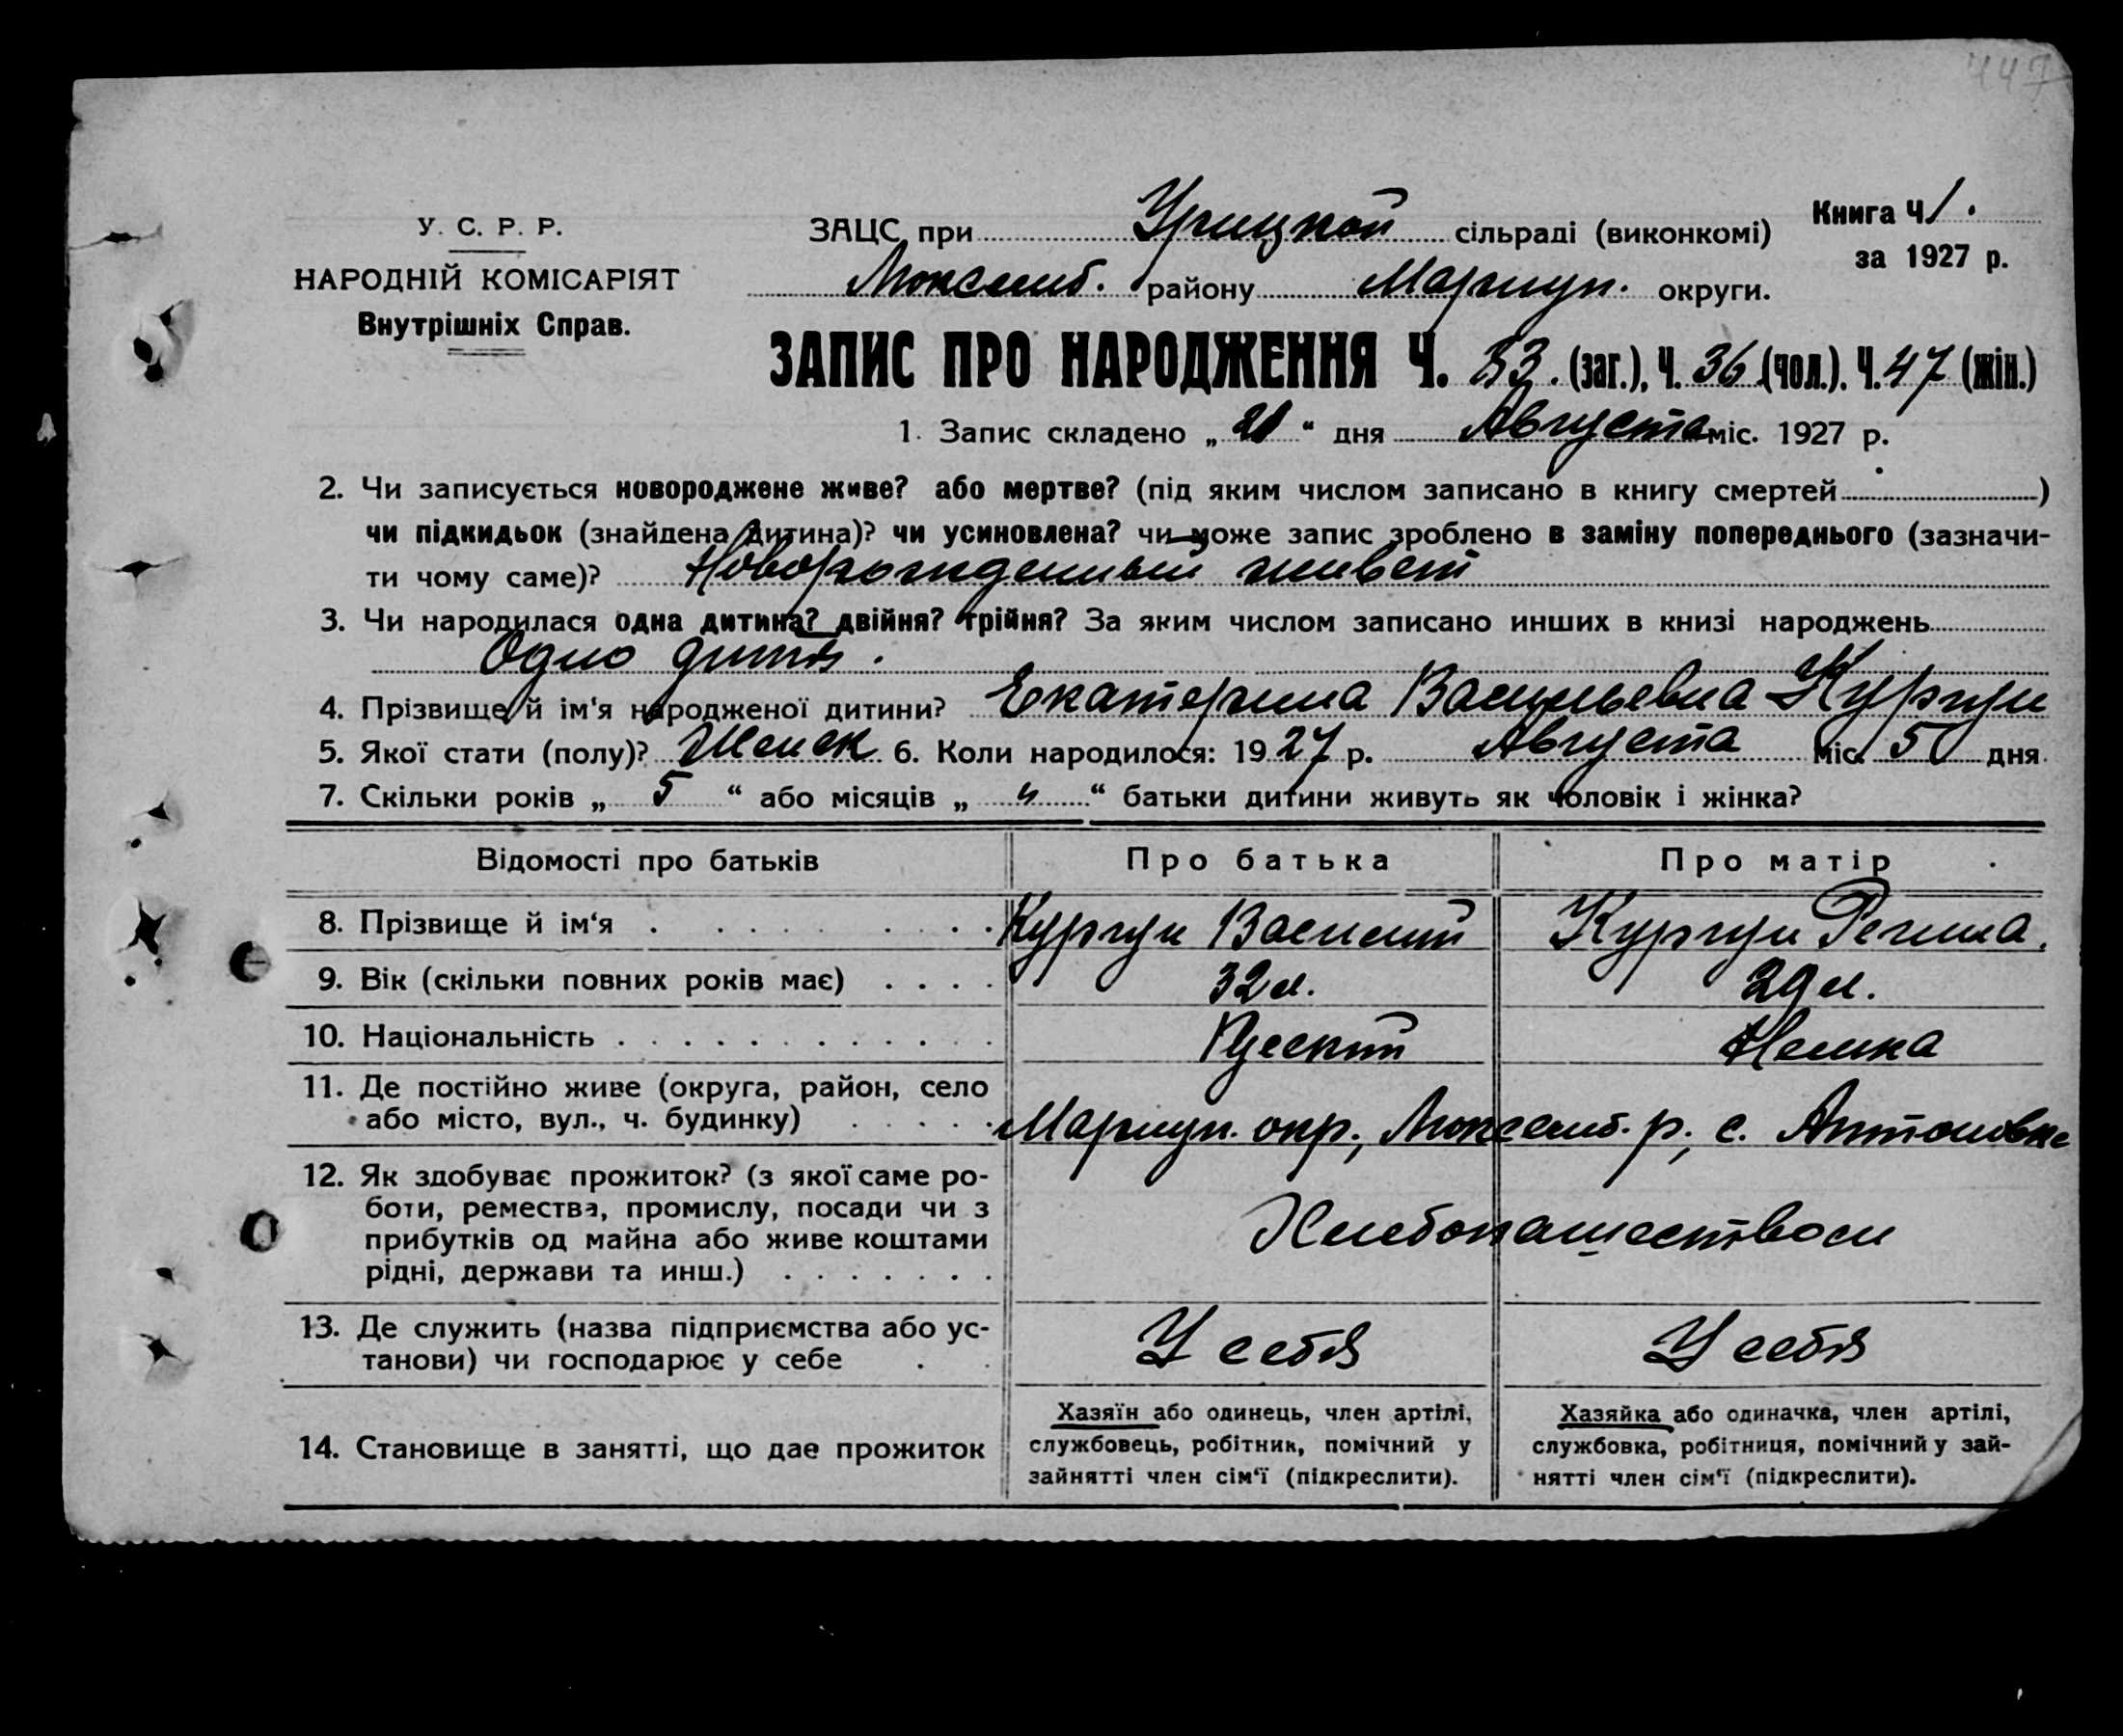 447
У. С. Р. Р.
НАРОДНІЙ КОМІСАРІЯТ
Внутрішніх Справ.
ЗАЦС при Урицкой сільраді (виконкомі)
Книга Ч 1.
за 1927 р.
Люксемб. району Мариуп. округи.
ЗАПИС ПРО НАРОДЖЕННЯ Ч. 83. (заг.), Ч. 36 (чол.). Ч. 47 (жін.)
1. Запис складено „ " дня Августа міс. 1927 р.
2. Чи записується новороджене живе? або мертве? (під яким числом записано в книгу смертей)
чи підкидьок (знайдена дитина)? чи усиновлена? чи може запис зроблено в заміну попереднього (зазначи-
ти чому саме)? Новорожденный живой
3. Чи народилася одна дитина? двійня? трійня? За яким числом записано инших в книзі народжень
Одно дитя.
4. Прізвище й ім'я народженої дитини? Екатерина Васильевна Кургун
5. Якої стати (полу)? Женск 6. Коли народилося: 1927 р. Августа міс. 5 дня
7. Скільки років „ 5 " або місяців „ " " батьки дитини живуть як чоловік і жінка?
Відомості про батьків
Про батька
Про матір
8. Прізвище й ім'я
Кургун Василий
Кургун Регина.
9. Вік (скільки повних років має)
32 л.
29 л.
10. Національність
Руский
Немка
11. Де постійно живе (округа, район, село
або місто, вул., ч. будинку)
Мариуп. окр., Люксемб. р., с. Антоновке
12. Як здобуває прожиток? (з якої саме ро-
боти, ремества, промислу, посади чи з
прибутків од майна або живе коштами
рідні, держави та инш.)
Хлебопашеством
13. Де служить (назва підприємства або ус-
танови) чи господарює у себе
У себя
У себя
14. Становище в занятті, що дає прожиток
Хазяїн або одинець, член артілі,
службовець, робітник, помічний у
зайнятті член сім'ї (підкреслити).
Хазяйка або одиначка, член артілі,
службовка, робітниця, помічний у зай-
нятті член сім'ї (підкреслити).